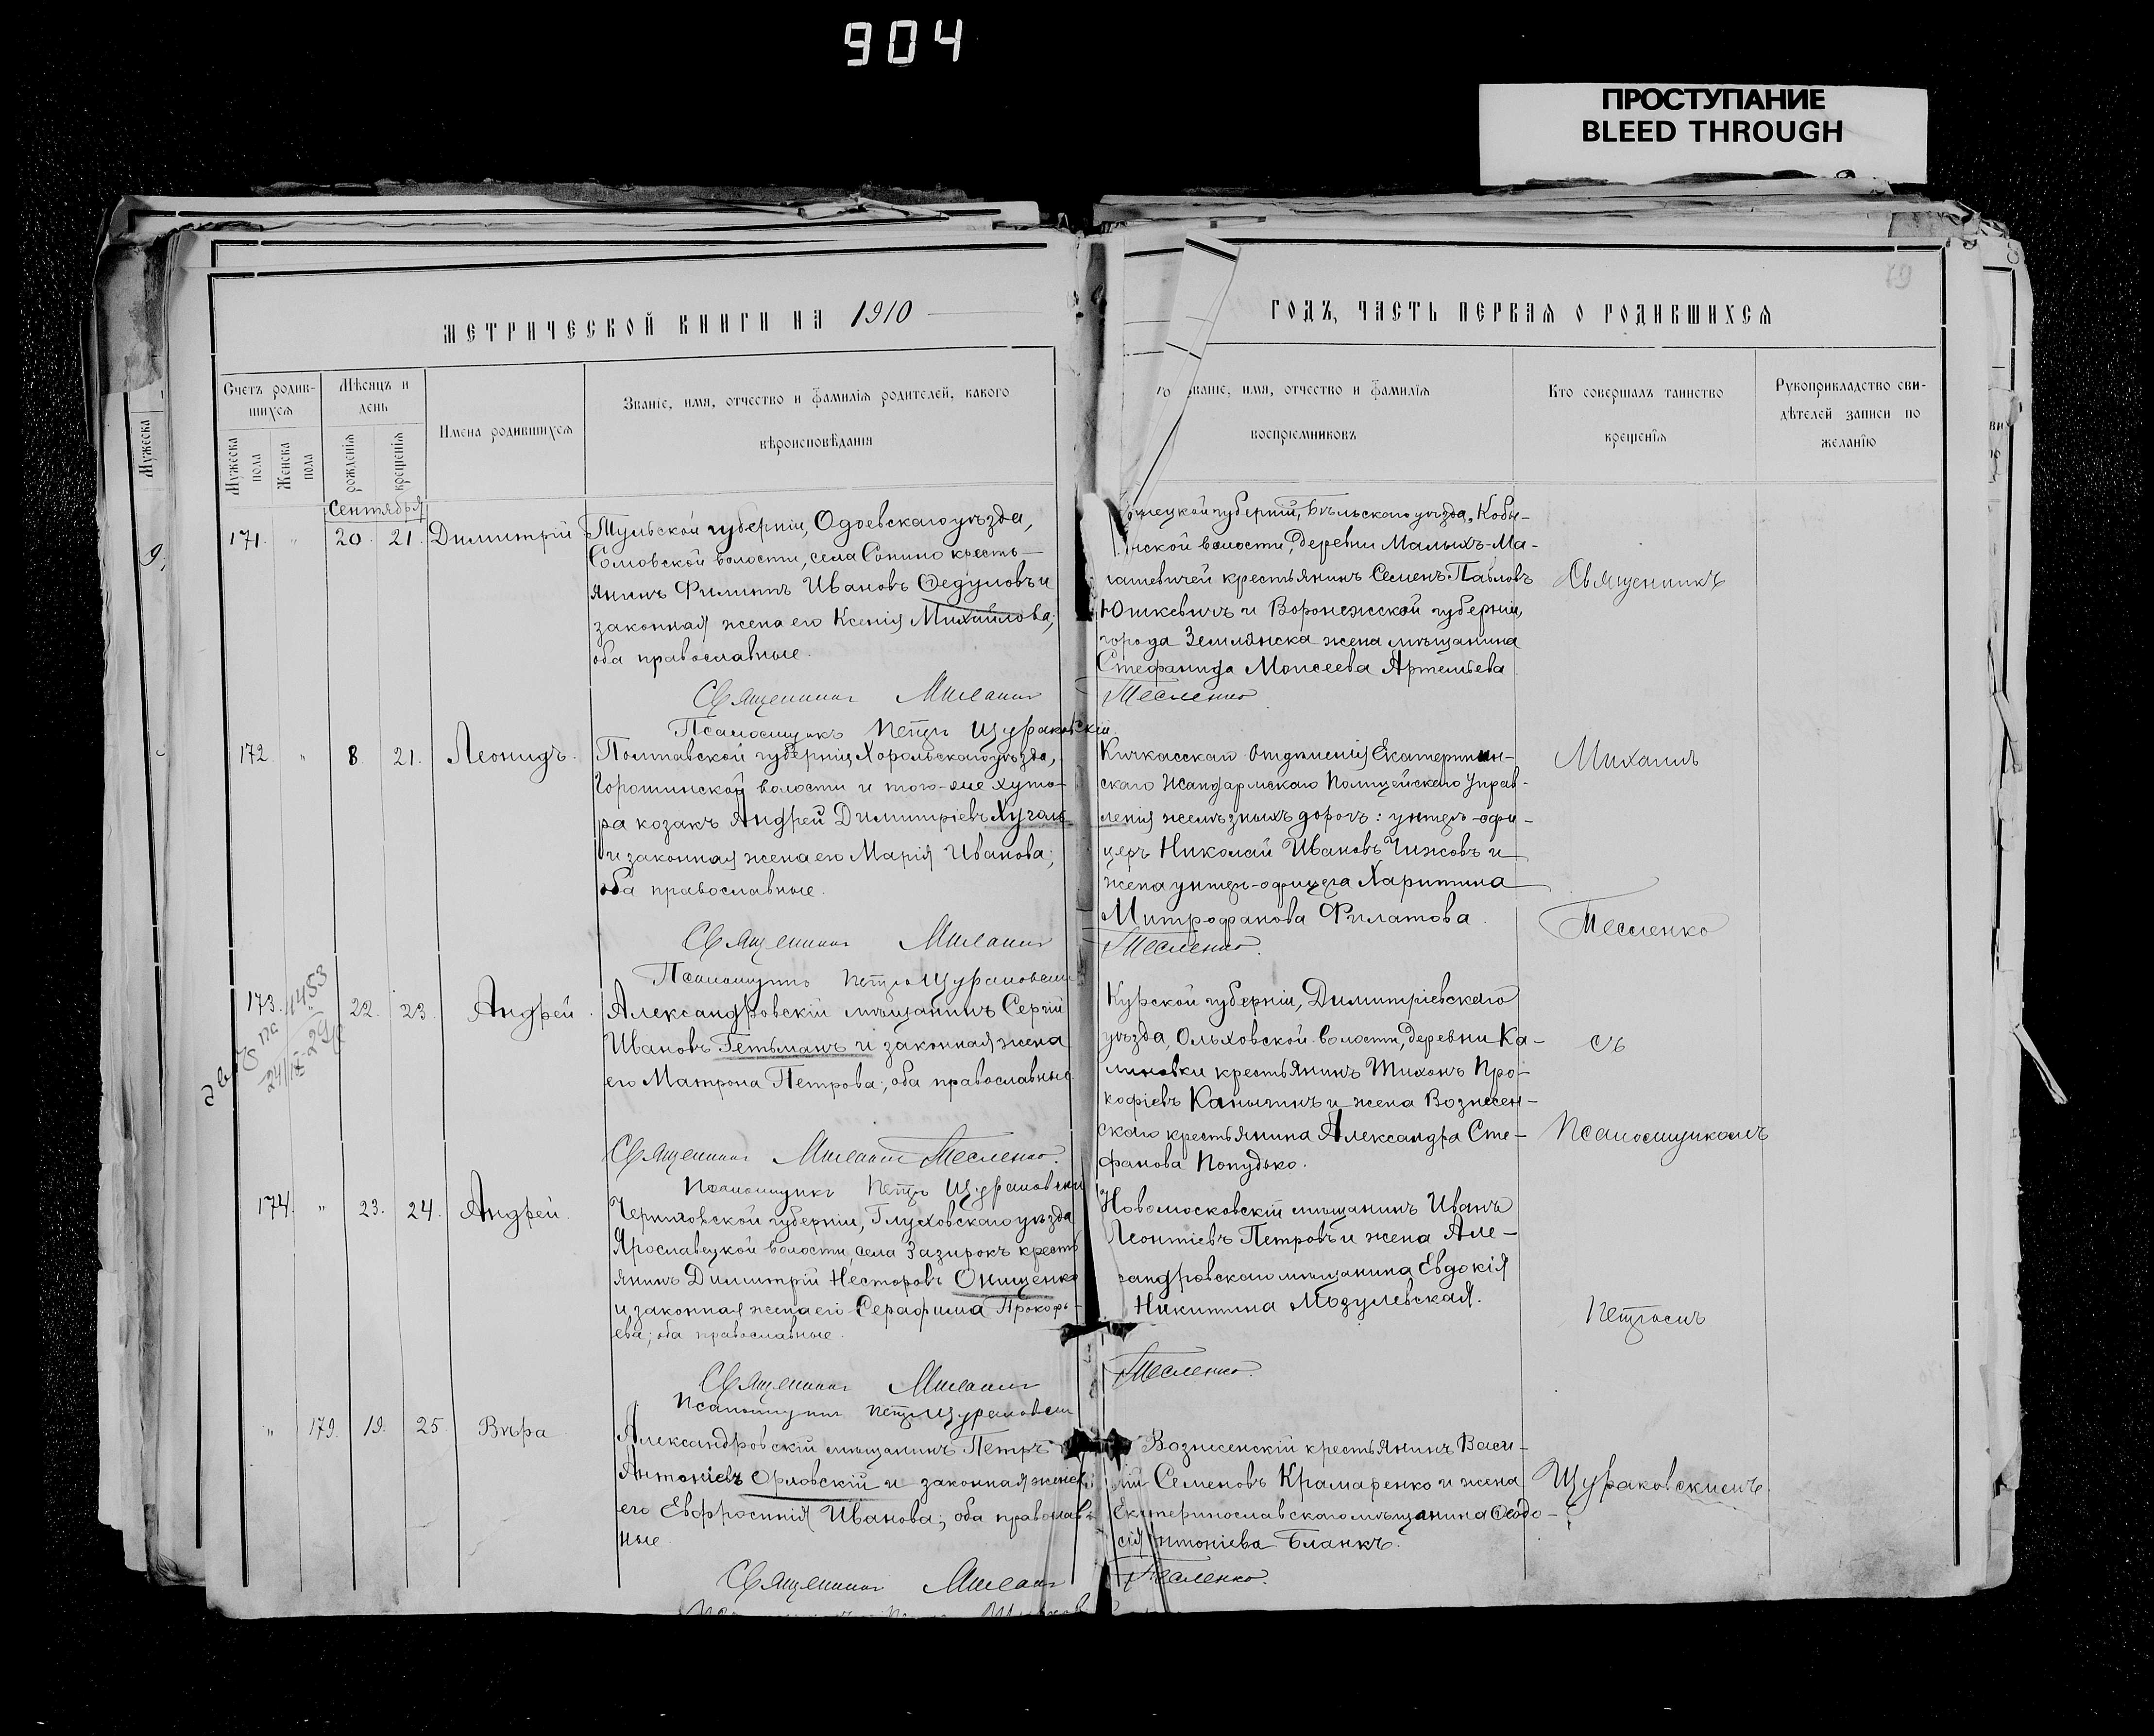 904
ПРОСТУПАНИЕ
BLEED THROUGH
79
МЕТРИЧЕСКОЙ КНИГИ НА 1910
ГОДЪ, ЧАСТЬ ПЕРВАЯ О РОДИВШИХСЯ
Счетъ родив-
шихся
Мужеска пола
Женска пола
Мѣсяцъ и
день
рожденія
крещенія
Имена родившихся
Званіе, имя, отчество и фамилія родителей, какого
вѣроисповѣданія
званіе, имя, отчество и фамилія
воспріемниковъ
Кто совершалъ таинство
крещенія
Рукоприкладство сви-
дѣтелей записи по
желанію
Мужеска
Сентября
171. " 20. 21. Димитрій
Тульской губерніи, Одоевскаго уѣзда,
Сомовской волости, села Сопино кресть-
янинъ Филиппъ Ивановъ Ѳедуловъ и
законная жена его Ксенія Михайлова;
оба православные.
губерніи, Бѣльскаго уѣзда, Кобы-
ской волости, деревни Малыхъ-Ма-
крестьянинъ Семенъ Павловъ
Юшкевичъ и Воронежской губерніи,
города Землянска жена мѣщанина
Стефанида Моисеева Артемьева
Священникъ Михаилъ Тесленко
Псаломщикъ Петръ Щураковскій
172. " 8. 21. Леонидъ.
Полтавской губерніи, Хорольскаго уѣзда,
Горошинской волости и того-же хуто-
ра козакъ Андрей Димитріевъ
и законная жена его Марія Иванова;
оба православные.
Кичкасскаго отдѣленія Екатеринин-
скаго Жандармскаго Полицейскаго Управ-
ленія желѣзныхъ дорогъ: унтеръ-офи-
церъ Николай Ивановъ Чижовъ и
жена унтеръ-офицера Харитина
Митрофанова Филатова.
Священникъ Михаилъ Тесленко.
Псаломщикъ Петръ Щураковскій
173. 22. 23. Андрей.
Александровскій мѣщанинъ Сергій
Ивановъ Гетьманъ и законная жена
его Матрона Петрова; оба православные.
Курской губерніи, Димитріевскаго
уѣзда, Ольховской волости, деревни Ка-
линовки крестьянинъ Тихонъ Про-
кофіевъ Каныгинъ и жена Вознесен-
скаго крестьянина Александра Сте-
фанова Попудько.
Священникъ Михаилъ Тесленко.
Псаломщикъ Петръ Щураковскій
174. " 23. 24. Андрей.
Черниговской губерніи, Глуховскаго уѣзда
Ярославецкой волости, села Зазирокъ кресть
янинъ Димитрій Несторовъ Онищенко
и законная жена его Серафима Прокофь-
ева; оба православные.
Новомосковскій мѣщанинъ Иванъ
Леонтіевъ Петровъ и жена Алек-
сандровскаго мѣщанина Евдокія
Никитина Мозулевская.
Священникъ Михаилъ Тесленко.
Псаломщикъ Петръ Щураковскій
" 179. 19. 25 Вѣра
Александровскій мѣщанинъ Петръ
Антоніевъ Орловскій и законная жена
его Евфросинія Иванова; оба православ
ные
Вознесенскій крестьянинъ Васи-
лій Семеновъ Крамаренко и жена
Екатеринославскаго мѣщанина Ѳеодо-
сія Антоніева Бланкъ.
Священникъ Михаилъ Тесленко.
Священникъ
Михаилъ
Тесленко
съ
Псаломщикомъ
Петромъ
Щураковскимъ.